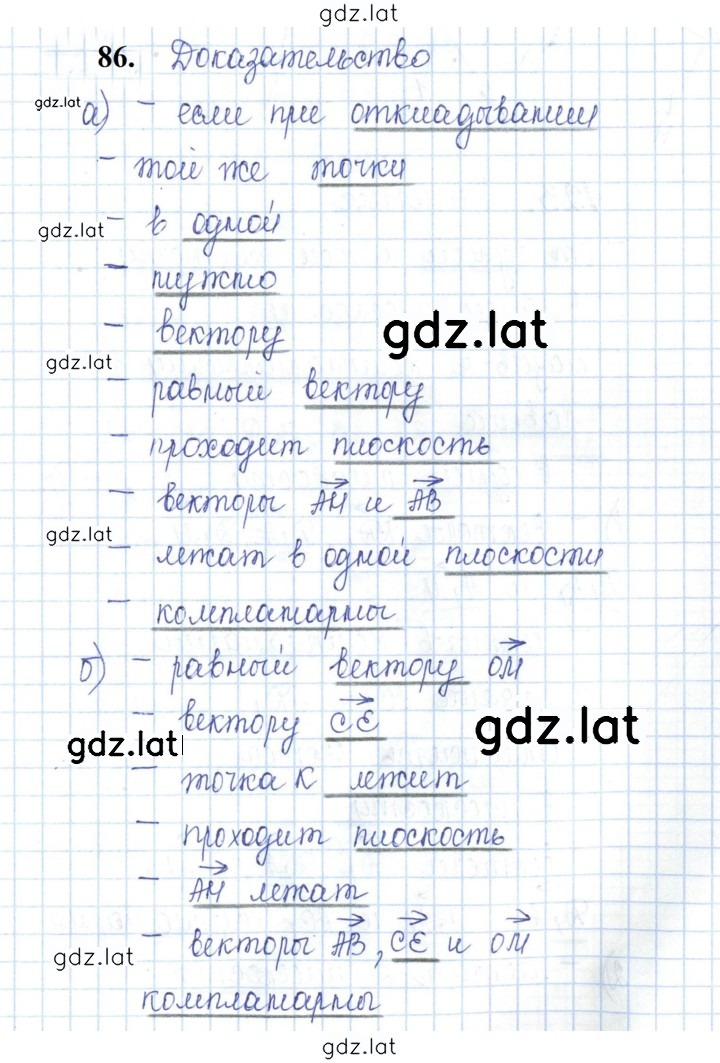 gdz.lat
86. Доказательство
gdz.lat а) – если при откладывании
– той же точки
gdz.lat – в одной
– нужно
– вектору gdz.lat
gdz.lat – равный вектору
– проходит плоскость
– векторы AM и AB
gdz.lat – лежат в одной плоскости
– компланарны
б) – равный вектору OM
gdz.lat – вектору CE gdz.lat
– точка K лежит
– проходит плоскость
– AM лежат
gdz.lat – векторы AB, CE и OM
компланарны
gdz.lat